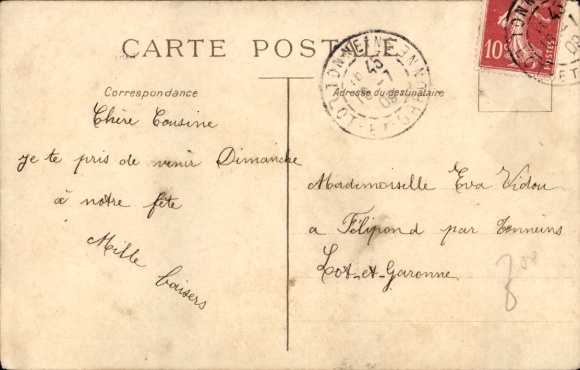 CARTE POSTALE
Correspondance
Adresse du destinataire
Chère Cousine
je te pris de venir Dimanche
à notre fête
Mille baisers
Mademoiselle Eva Vidou
a Félipond par Tonneins
Lot-et-Garonne
TONNEINS
LOT-ET-GARONNE
10